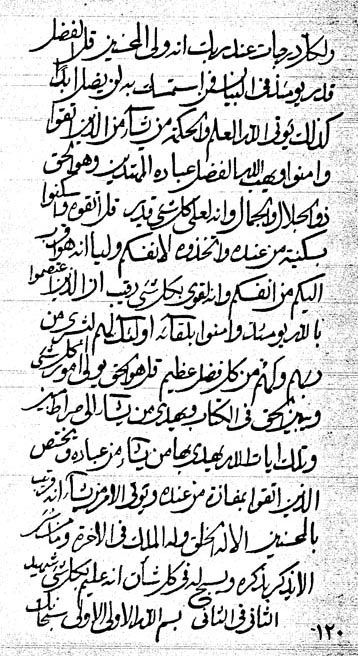 ولكل درجات عند ربك انه ولى المحسنين قل الفضل
قدر يومئذ فى البيان فمن استمسك به لن يضل ابدا
كذلك يوتى الله العلم والحكمة من يشاء من الذين اتقوا
وامنوا ويهب الله الفضل عباده المهتدين وهو الحق
ذو الجلال والجمال وانه لعلى كل شئ قدير قل اتقوه واسكنوا
بسكينة من عنده واتخذوه لانفسكم وليا انه هو اقرب
اليكم من انفسكم وانه لقوى بكل شئ رقيب ان الذين اعتصموا
بالله يومئذ وامنوا بلقائه اولئك لهم البشرى من
ربهم ولهم من كل فضل عظيم قل هو الحق يولى امور كل شئ
وينزل الحق فى الكتاب ويهدى من يشاء الى صراط مبين
وتلك ايات الله يهدى بها من يشاء من عباده ويختص
الذين اتقوا بمفازة من عنده ويوتى الامر من يشاء انه قريب
بالمحسنين الا له الخلق وله الملك فى الاخرة وما من ذكر
الا يذكر بذكره ويسبح له فى كل شأن انه عليم بكل شئ شهيد
الثانى فى الثانى بسم الله الاولى الاولى سبحانك
١٢٠